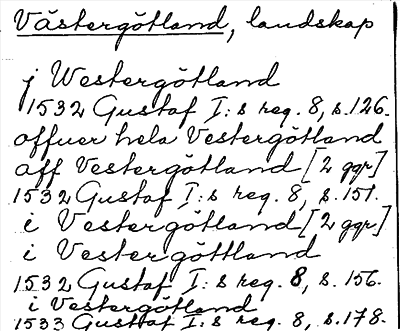 Västergötland, landskap
j Westergötland
1532 Gustaf I:s reg. 8, s. 126.
offuer hela Vestergötland
aff Vestergötland [2 ggr]
1532 Gustaf I:s reg. 8, s. 151.
i Vestergötland [2 ggr]
i Vestergöttland
1532 Gustaf I:s reg. 8, s. 156.
i Vestergötland
1533 Gustaf I:s reg. 8, s. 178.